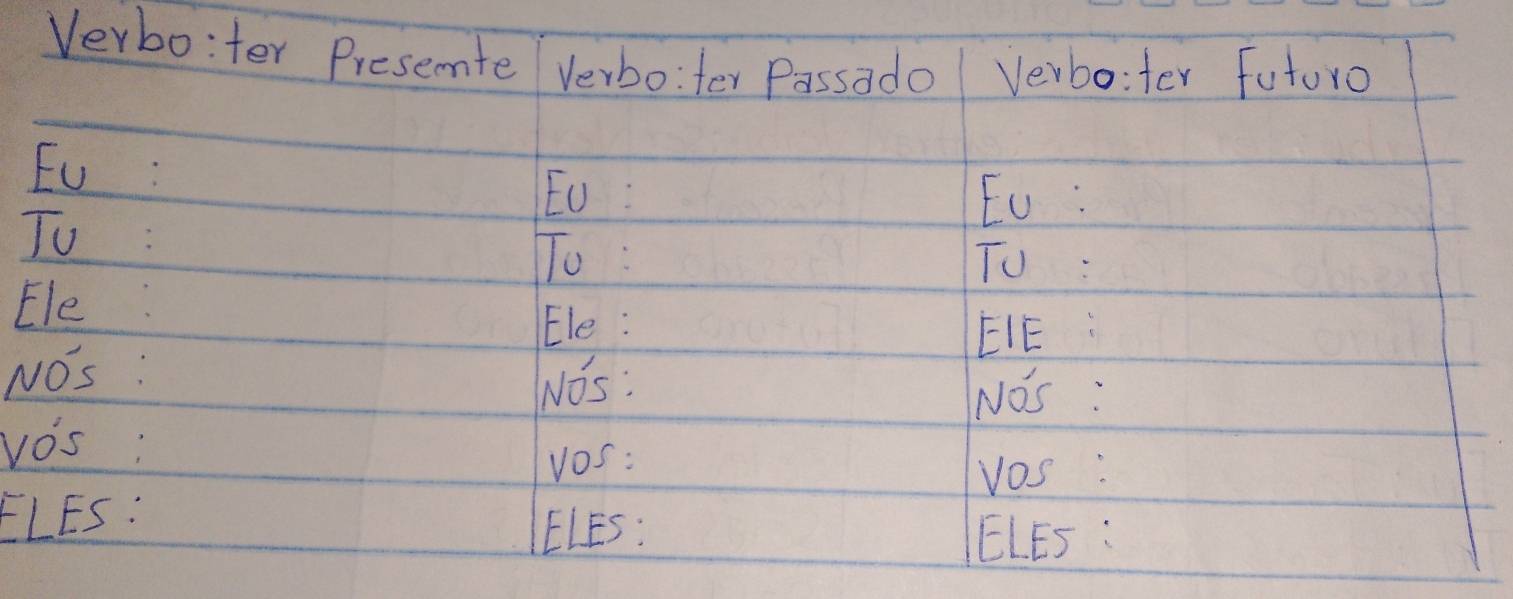 Verbo:ter Presente Verbo:ter Passado Verbo:ter Futuro
Eu : Eu : Eu :
Tu : Tu : Tu :
Ele : Ele : ElE :
Nós : Nós : Nós :
Vós : Vos : Vos :
ELES : ELES : ELES :